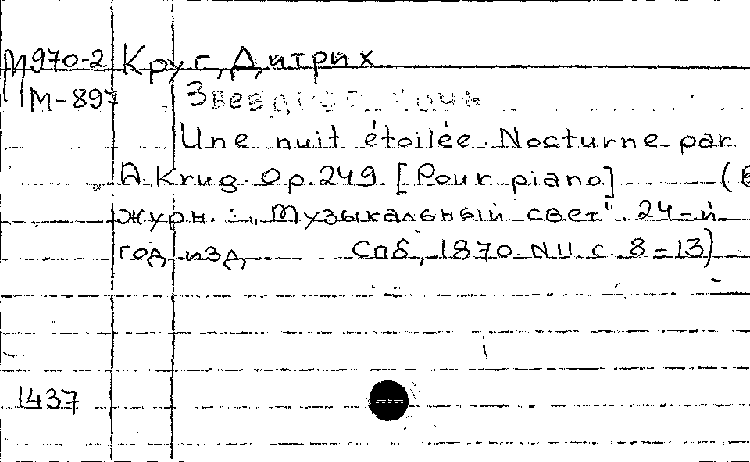 М970-2 Круг, Дитрих
М-897 Звездная ночь
Une nuit étoilée. Nocturne par
A. Krug. Op. 249. [Pour piano] (В
журн.: „Музыкальный свет". 24-й
год изд. Спб, 1870 N 11. с. 8-13)
1437